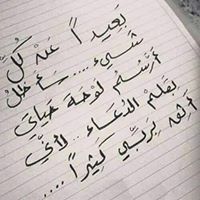 بَعِيداً عَنْ كُلِّ
شَيْءٍ .... سَأَظَلُّ
أَرْسُمُ لَوْحَةَ حَيَاتِي
بِقَلَمِ الدُّعَاءِ .. لِأَنِّي
أَثِقُ بِرَبِّي كَثِيراً ....